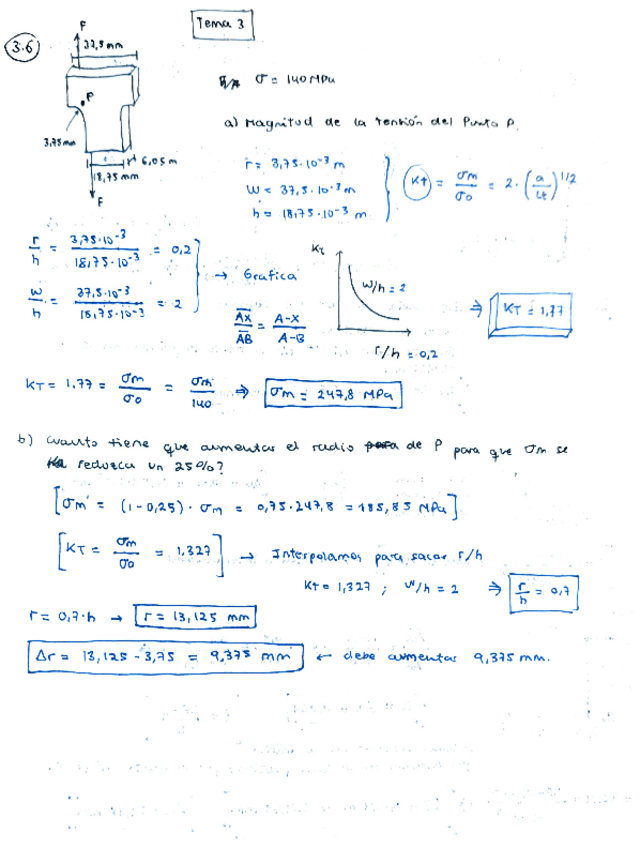 Tema 3
3.6
F
37,5 mm
P
3,75 mm
6,05 m
18,75 mm
F
σ = 140 MPa
a) Magnitud de la tensión del Punto P.
r = 3,75·10⁻³ m
W = 37,5·10⁻³ m
h = 18,75·10⁻³ m
Kt = σm/σo = 2·(a/ρt)^1/2
r/h = 3,75·10⁻³/18,75·10⁻³ = 0,2
w/h = 37,5·10⁻³/18,75·10⁻³ = 2
→ Grafica
AX/AB = A-X/A-B
Kt
W/h = 2
r/h = 0,2
⇒ KT = 1,77
KT = 1,77 = σm/σo = σm/140 ⇒ σm = 247,8 MPa
b) Cuanto tiene que aumentar el radio de P para que σm se
reduzca un 25%?
[σm' = (1-0,25)·σm = 0,75·247,8 = 185,85 MPa]
[KT = σm/σo = 1,327] → Interpolamos para sacar r/h
Kt = 1,327 ; W/h = 2 ⇒ r/h = 0,7
r = 0,7·h → r = 13,125 mm
Δr = 13,125 - 3,75 = 9,375 mm ← debe aumentar 9,375 mm.